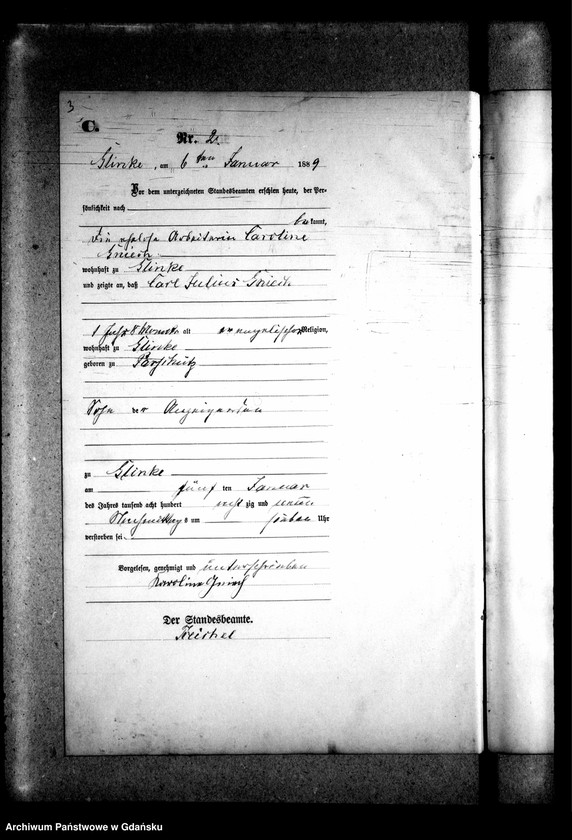 3
C.
Nr. 2.
Glinke, am 6 ten Januar 1889
Vor dem unterzeichneten Standesbeamten erschien heute, der Per-
sönlichkeit nach
bekannt,
die Arbeiterin Caroline
Gniech
wohnhaft zu Glinke
und zeigte an, daß Carl Julius Gniech
1 Jahr 8 Monate alt evangelischer Religion,
wohnhaft zu Glinke
geboren zu
Sohn der Anzeigenden
zu Glinke
am fünf ten Januar
des Jahres tausend acht hundert acht zig und neun
Nachmittags um sieben Uhr
verstorben sei.
Vorgelesen, genehmigt und unterschrieben
Karoline Gniech
Der Standesbeamte.
Archiwum Państwowe w Gdańsku